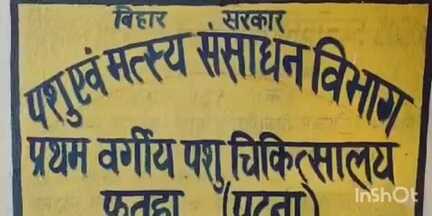 बिहार सरकार
पशु एवं मत्स्य संसाधन विभाग
प्रथम वर्गीय पशु चिकित्सालय
फतुहा (पटना)
InShOt